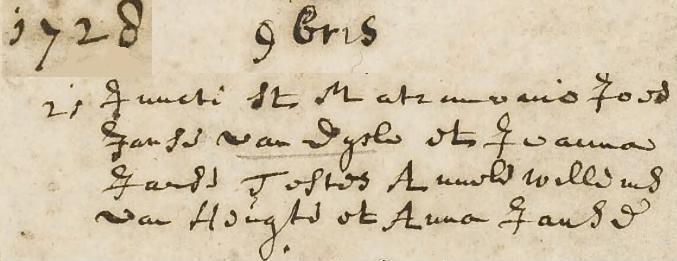 1728 9bris
21 Juncti st Matrimonio Joes
Janse van Dyela et Joanna
Janse Testes Arnold Willems
van Heugte et Anna Janse